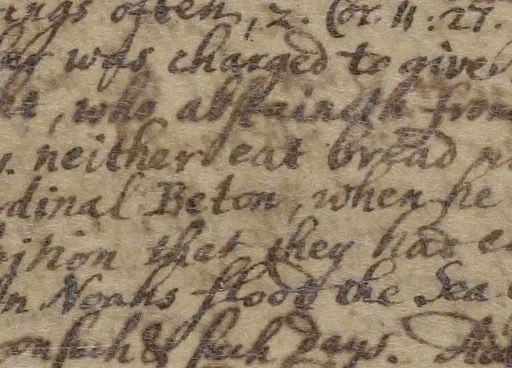 ings often, 2. Cor. 11:27.
was charged to give
, who abstaineth from
neither eat bread
dinal Beton, when he
ition that they had e
Noahs flood the Sea
such & such days.